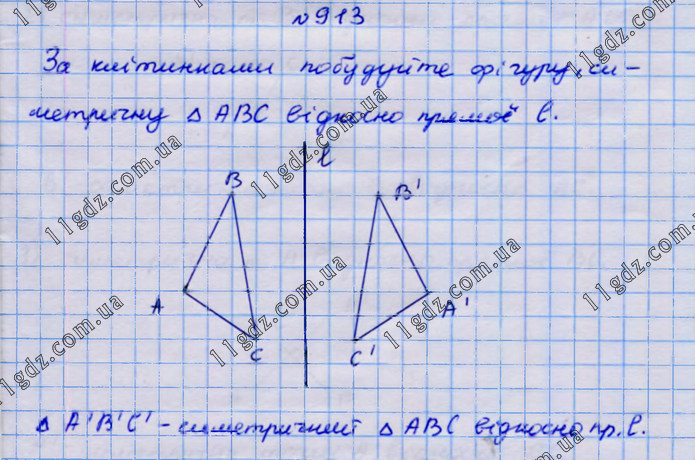 №913
За клітинками побудуйте фігуру, си-
метричну △ ABC відносно прямої l.
l
B
B'
A
A'
C
C'
△ A'B'C' - симетричний △ ABC відносно пр. l.
11gdz.com.ua
11gdz.com.ua
11gdz.com.ua
11gdz.com.ua
11gdz.com.ua
11gdz.com.ua
11gdz.com.ua
11gdz.com.ua